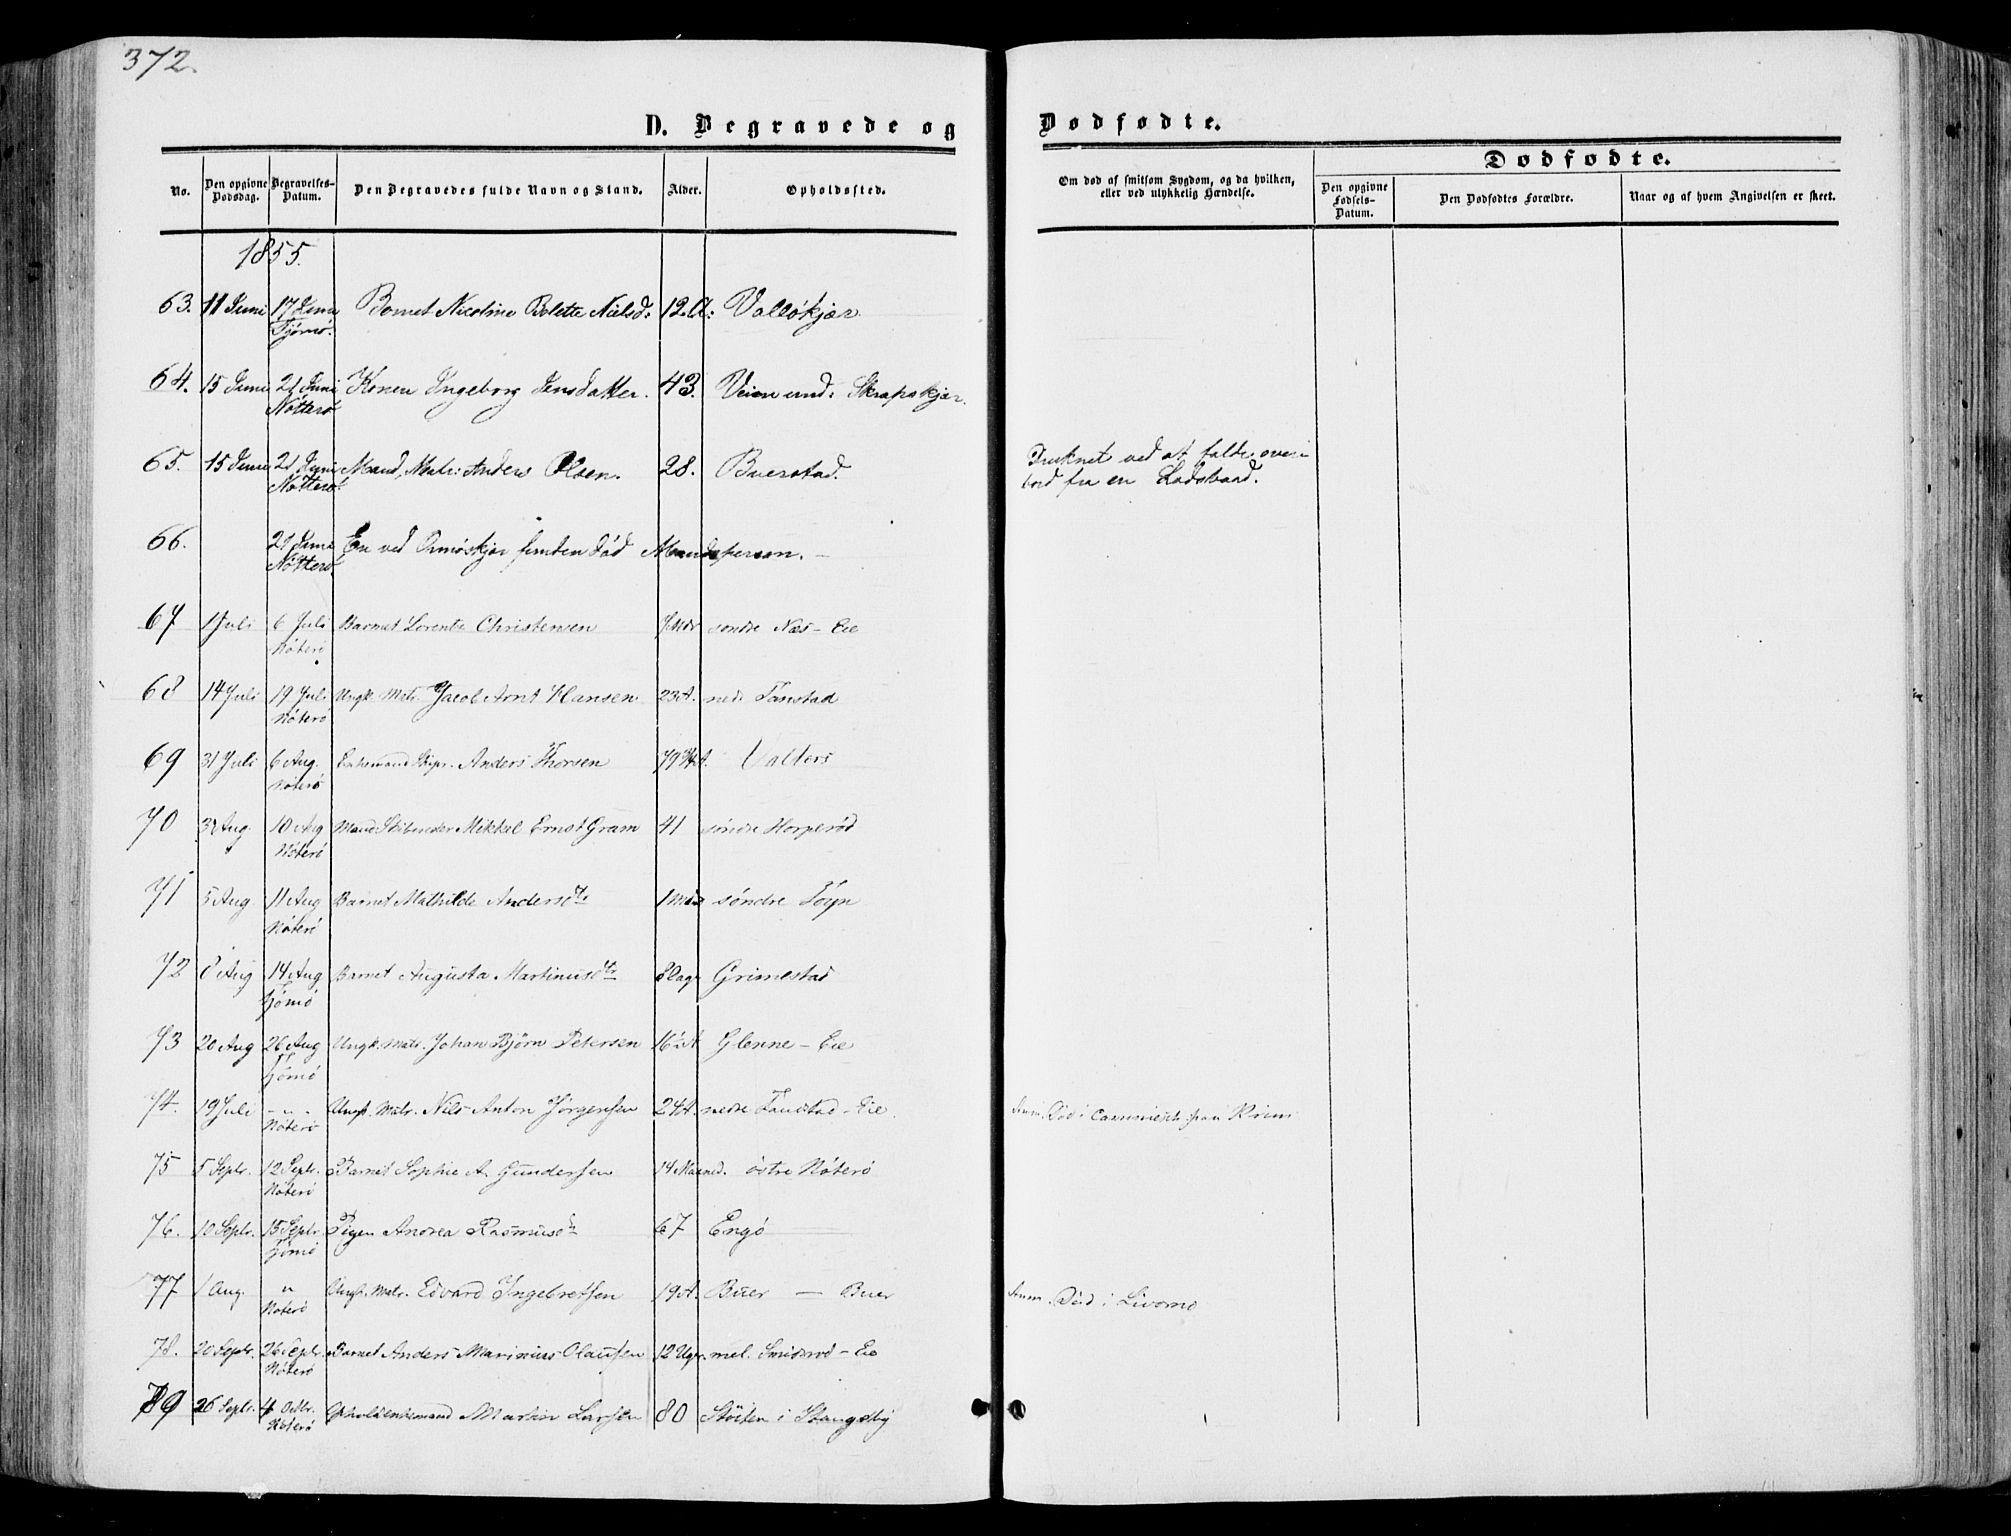 372.
D. Begravede og Dødfødte.
No. Den opgivne Dødsdag. Begravelses-Datum. Den Begravedes fulde Navn og Stand. Alder. Opholdssted.
Om død af smitsom Sygdom, og da hvilken, eller ved ulykkelig Hændelse.
Dødfødte.
Den opgivne Fødsels-Datum. Den Dødfødtes Forældre. Naar og af hvem Angivelsen er skeet.
1855.
63. 11 Juni 17 Juni Tjømø. Barnet Nicoline Bolette Nielsd: 12. A: Valløkjær.
64. 15 Juni 21 Juni Nøtterø Konen Ingeborg Jensdatter. 43. Veien und: Skrapskjær.
65. 15 Juni 21 Juni Nøtterø. Mand, Matr: Anders Olsen. 28. Buerstad. Druknet ved at falde over
bord fra en Lodsbaad.
66. 21 Juni Nøtterø. En ved Ormøskjær funden død Mandsperson. –
67 1 Juli 6 Juli Nøterø Barnet Lorentze Christensen 7 Mdr søndre Næs – Eie
68 14 Juli 19 Juli Nøterø Ungk. Matr. Jacob Arnt Hansen 23 A. nedr Tanstad
69 31 Juli 6 Aug. Nøterø Enkemand Skipr. Anders Thorsen 79 3/4 A. Valters
70 3 Aug. 10 Aug Nøterø Mand Mikkel Ernst Gram 41 søndre Horperød
71 5 Aug 11 Aug Nøterø Barnet Mathilde Andersdtr 1 Mdr søndre Töyn
72 8 Aug 14 Aug Tjömö Barnet Augusta Martinusdtr 8 Dage Grimestad
73 20 Aug 26 Aug Tjömö Ungk. Matr. Johan Bjørn Petersen 16 A Glenne – Eie
74. 19 Juli – " – Nøterø Ungk. Matr. Nils Anton Jörgensen 24 A. nedre Tanstad – Eie. Død i
75 5 Septr. 12 Septr. Nøterø Barnet Sophie A. Gundersen 14 Maaned. östre Nöterö
76. 10 Septr. 15 Septr. Tjömö Pigen Andrea Rasmusdtr 67 Engö
77 1 Aug. " Nöterö Ungk. Matr. Edvard Ingebretsen 19 A. Buer — Buer Död i Livorno
78. 20 Septr. 26 Septr. Nöterö Barnet Anders Marinius Olausen 12 Uger. mel. Smidsrod – Eie
79 26 Septr. 4 Octbr. Nöterö Martin Larsen 80 Stöiten i Stangeby